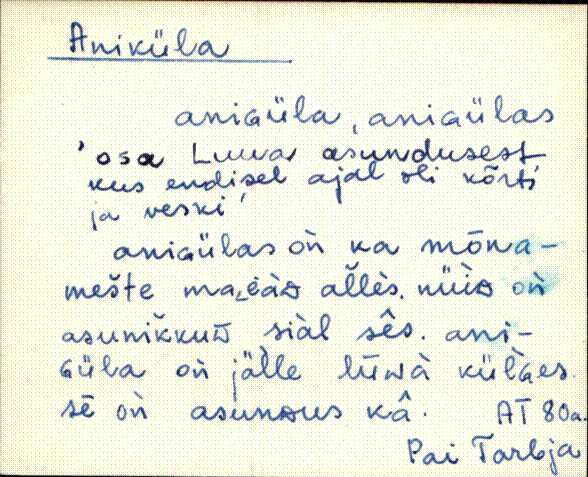 Aniküla
aniɢüla, aniɢülas
'osa Luua asundusest
kus endisel ajal oli kõrts
ja veski'
aniɢülas oǹ ka mõna-
mešte aĺĺès. nüìᴅ oǹ
asunikkuᴅ siàl sês. ani-
ɢüla oǹ jälle külɢes.
sē oǹ asunᴅus kâ. AT 80a.
Pai Tarbja